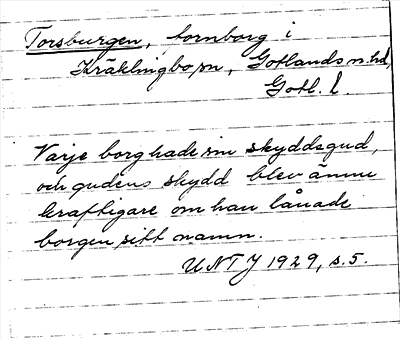 Torsburgen, fornborg i
Kräklingbo sn, Gotlands n. hd,
Gotl. l.
Varje borg hade sin skyddsgud,
och gudens skydd blev ännu
kraftigare om han lånade
borgen sitt namn.
UNTJ 1929, s. 5.